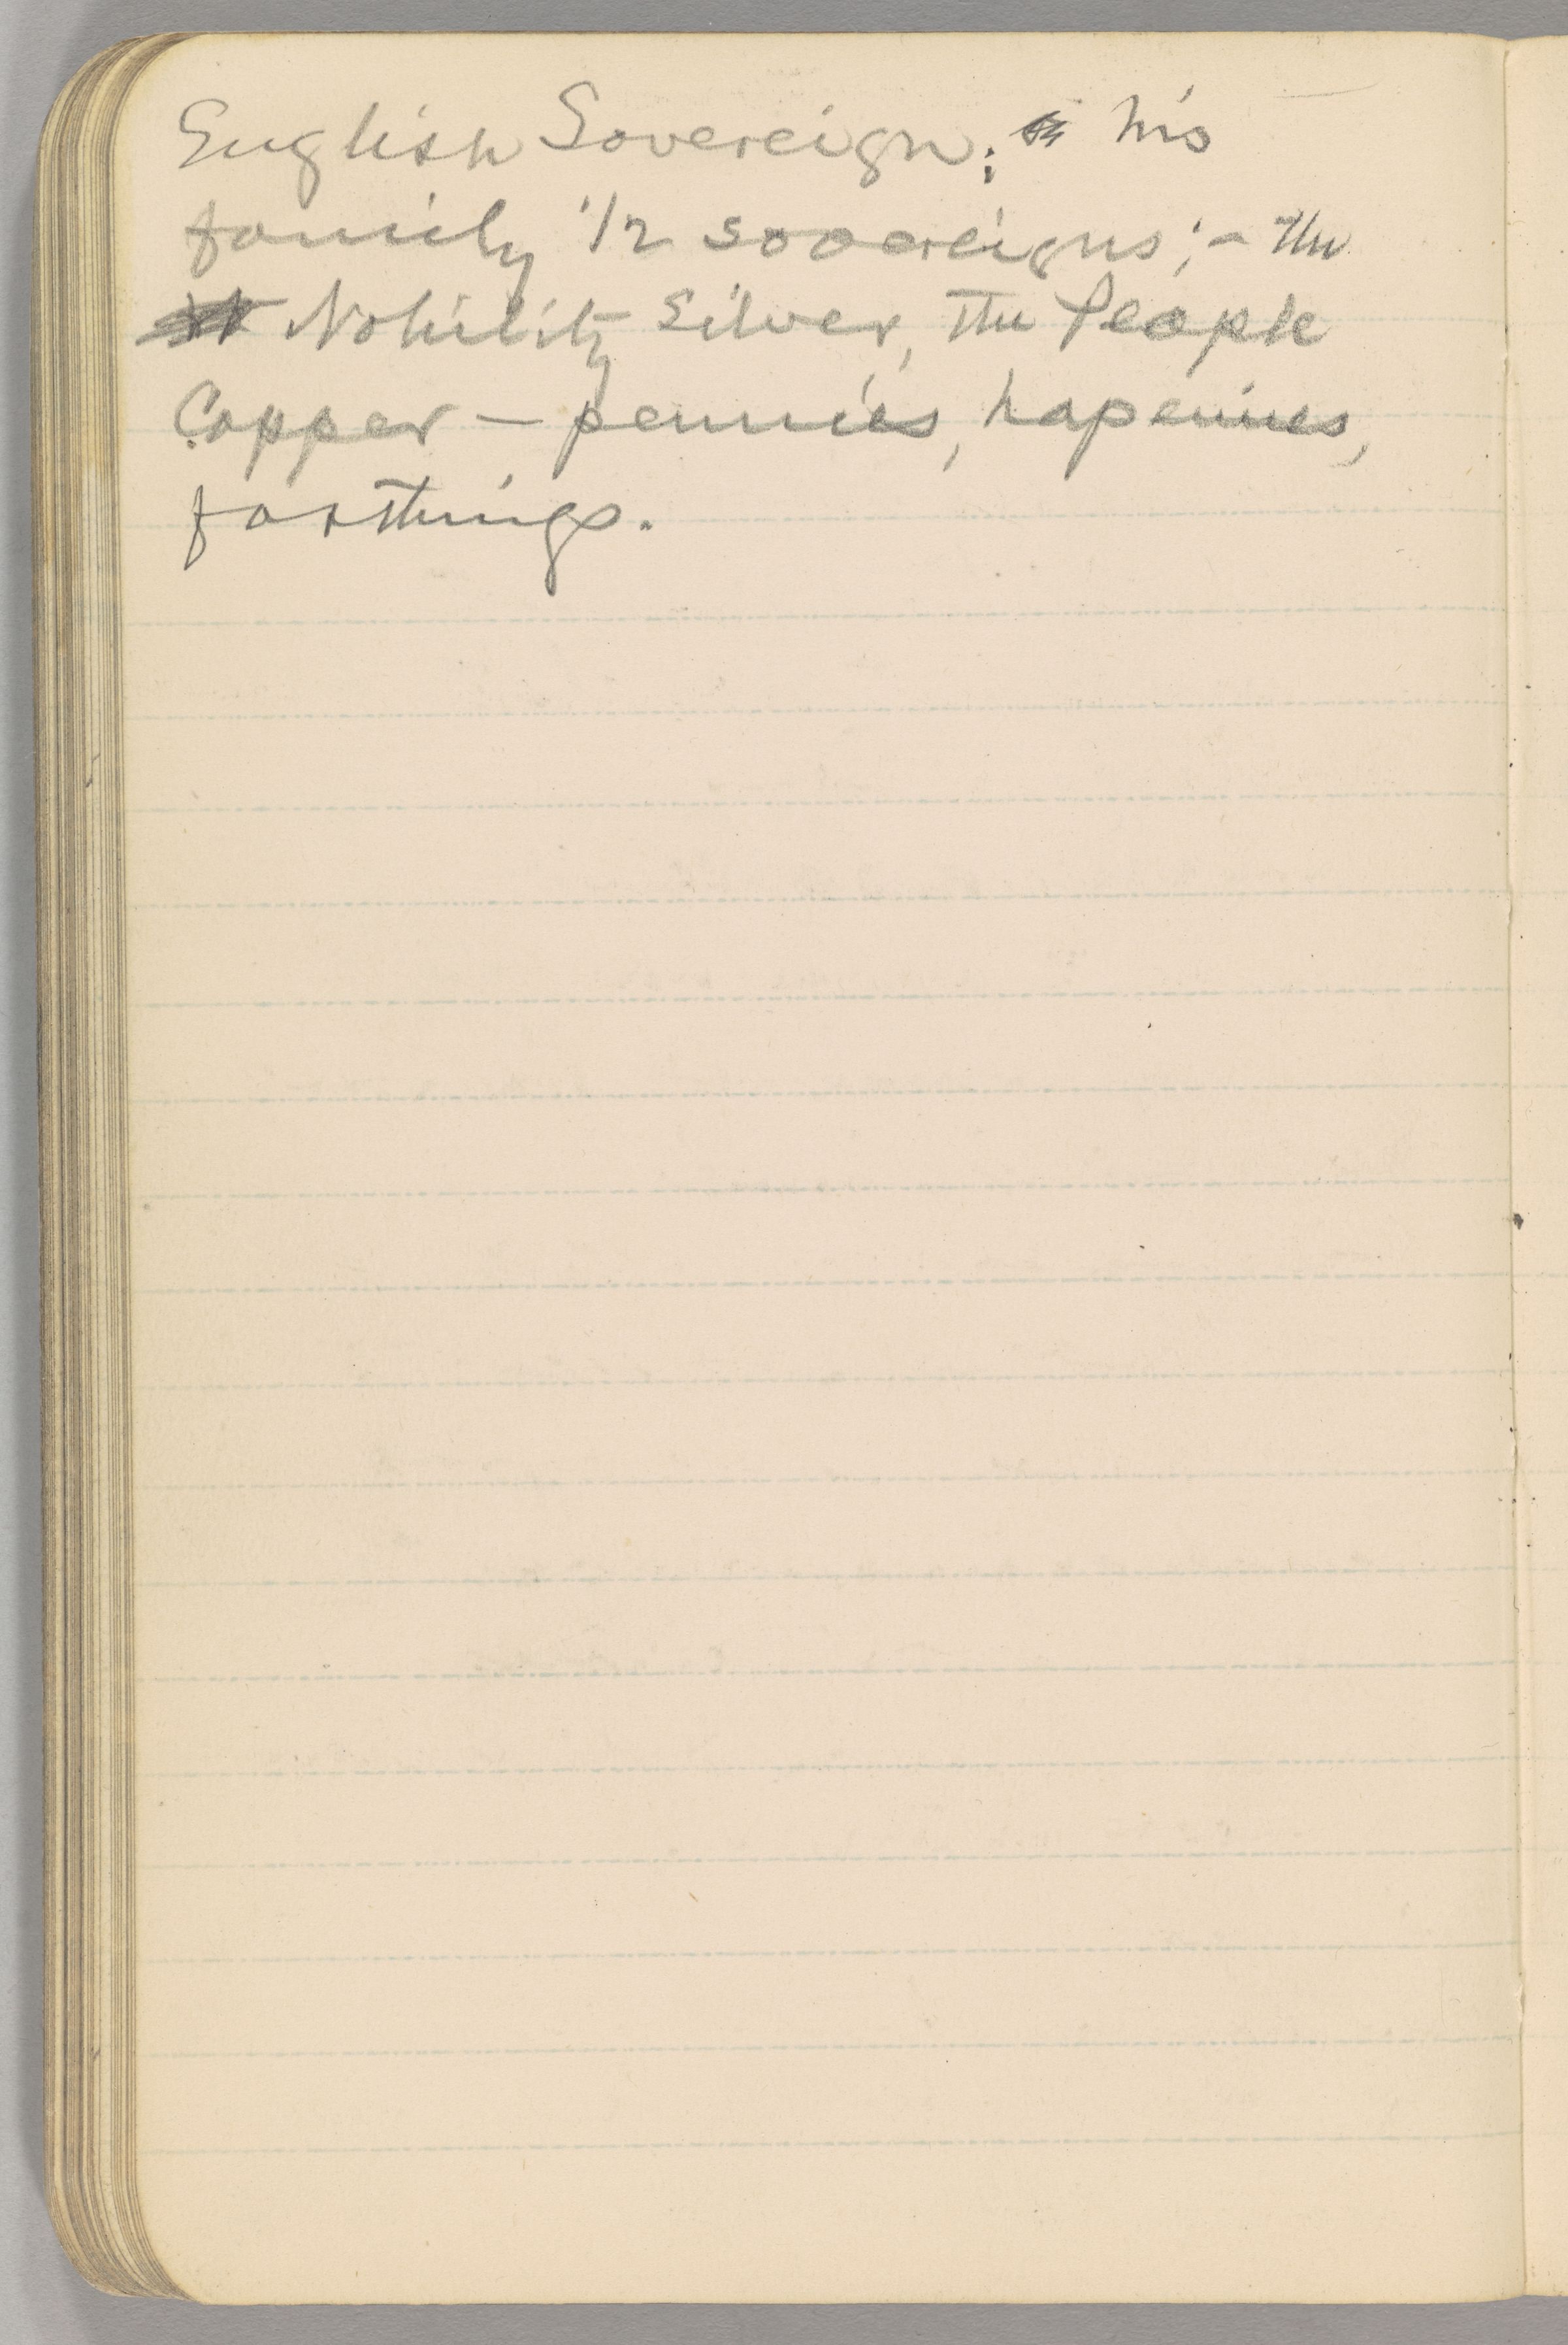 English Sovereign; his
family 1/2 sovereigns; - the
Nobility Silver, the People
Copper — pennies, hapennies,
farthings.